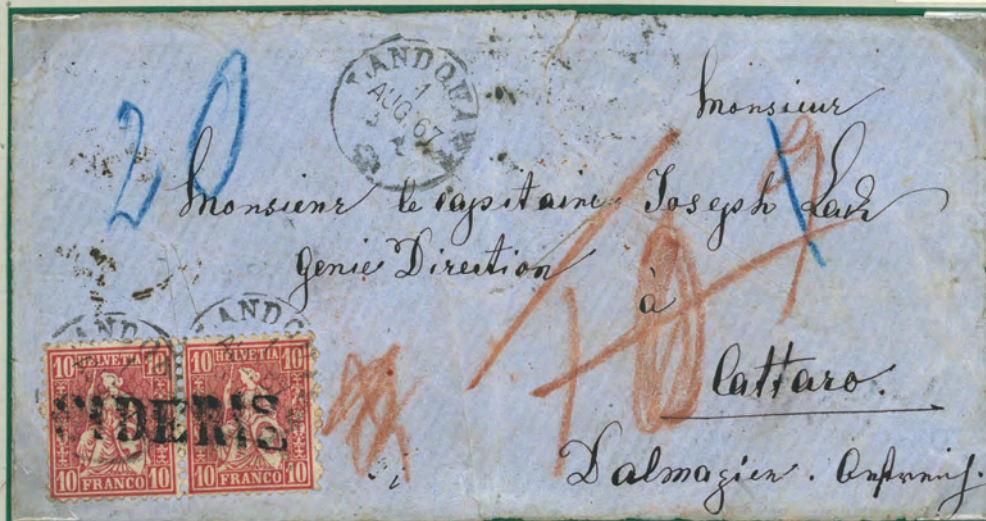 20
LANDQUART
1
AUG 67
Monsieur
Monsieur le capitaine Joseph
Genie Direction
à
Cattaro.
Dalmazien. Oestreich.
10 HELVETIA 10
10 FRANCO 10
10 HELVETIA 10
10 FRANCO 10